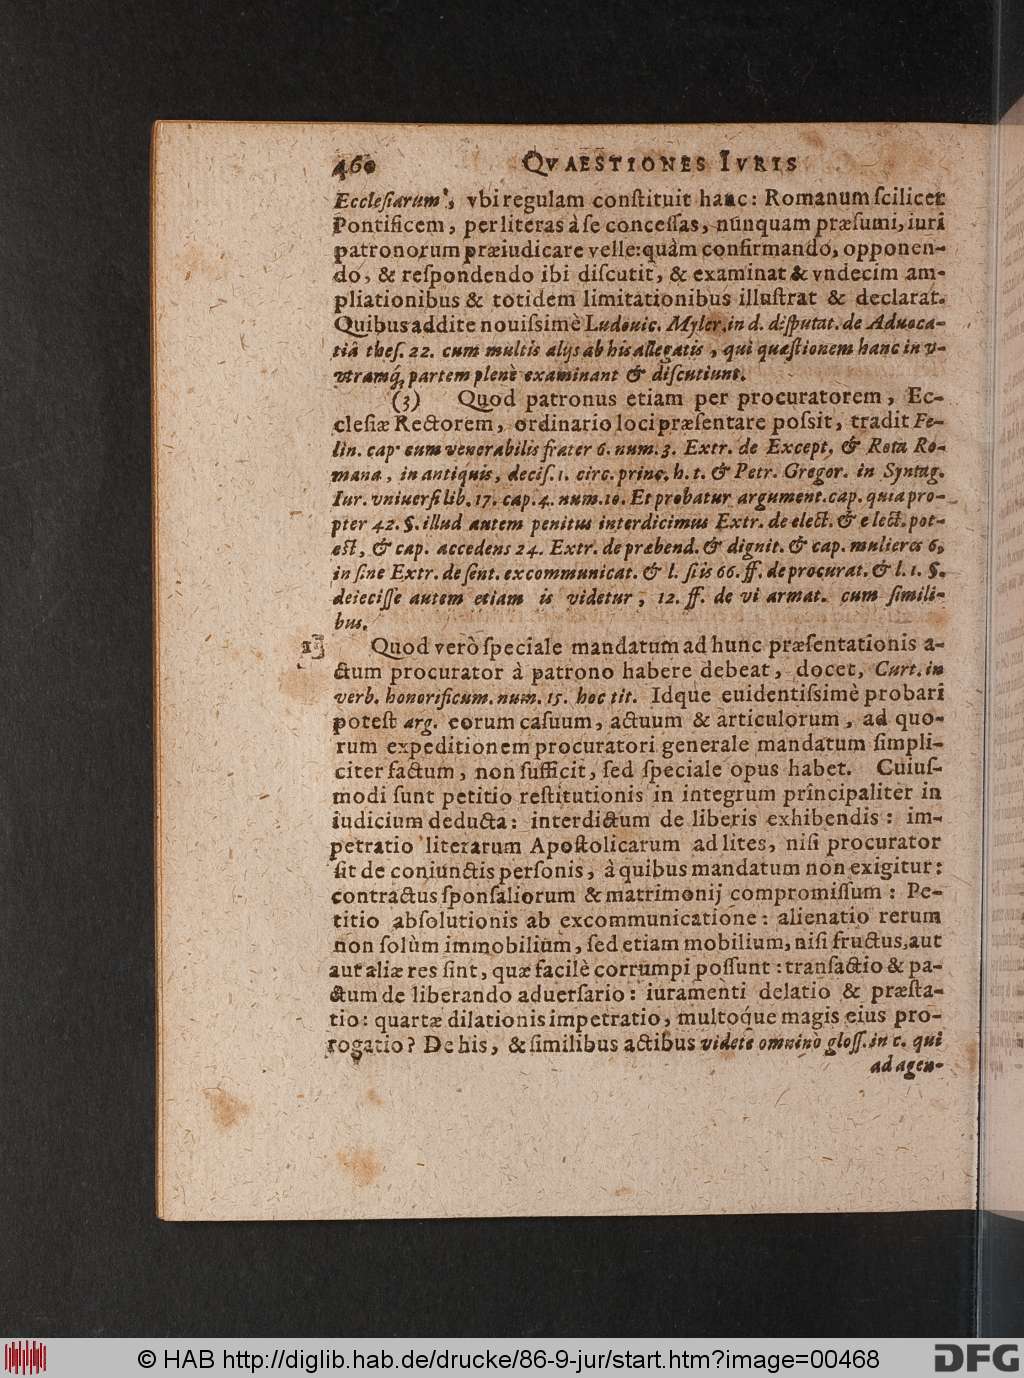 460 QVAESTIONES IVRIS
Ecclesiarum, vbi regulam constituit hanc: Romanum scilicet
Pontificem, per literas à se concessas, nunquam præsumi, iuri
patronorum præiudicare velle: quàm confirmando, opponen-
do, & respondendo ibi discutit, & examinat & vndecim am-
pliationibus & totidem limitationibus illustrat & declarat.
Quibus addite nouissimè Ludouic. Myler. in d. disputat. de Aduoca-
tiâ thes. 22. cum multis alijs ab his allegatis, qui quæstionem hanc in v-
vtramq́, partem plenè examinant & discutiunt.
(3) Quod patronus etiam per procuratorem, Ec-
clesiæ Rectorem, ordinario loci præsentare possit, tradit Fe-
lin. cap. cum venerabilis frater 6. num. 3. Extr. de Except, & Rota Ro-
mana, in antiquis, decis. 1. circ. princ. h. t. & Petr. Gregor. in Syntag.
Iur. vniuersi lib. 17. cap. 4. num. 10. Et probatur argument. cap. quia pro-
pter 42. §. illud autem penitus interdicimus Extr. de elect. & elect. pot-
est, & cap. accedens 24. Extr. de præbend. & dignit. & cap. mulieres 6,
in fine Extr. de sent. excommunicat. & l. filius 66. ff. de procurat. & l. 1. §.
deiecisse autem etiam is videtur, 12. ff. de vi armat. cum simili-
bus.
Quod verò speciale mandatum ad hunc præsentationis a-
ctum procurator à patrono habere debeat, docet, Curt. in
verb. honorificum. num. 15. hoc tit. Idque euidentissimè probari
potest arg. eorum casuum, actuum & articulorum, ad quo-
rum expeditionem procuratori generale mandatum simpli-
citer factum, non sufficit, sed speciale opus habet. Cuius-
modi sunt petitio restitutionis in integrum principaliter in
iudicium deducta: interdictum de liberis exhibendis: im-
petratio literarum Apostolicarum ad lites, nisi procurator
sit de coniunctis personis, à quibus mandatum non exigitur:
contractus sponsaliorum & matrimonij compromissum: Pe-
titio absolutionis ab excommunicatione: alienatio rerum
non solùm immobilium, sed etiam mobilium, nisi fructus, aut
aut aliæ res sint, quæ facilè corrumpi possunt: transactio & pa-
ctum de liberando aduersario: iuramenti delatio & præsta-
tio: quartæ dilationis impetratio, multoq́ue magis eius pro-
rogatio? De his, & similibus actibus videte omnino gloss. in c. qui
ad agen-
© HAB http://diglib.hab.de/drucke/86-9-jur/start.htm?image=00468
DFG